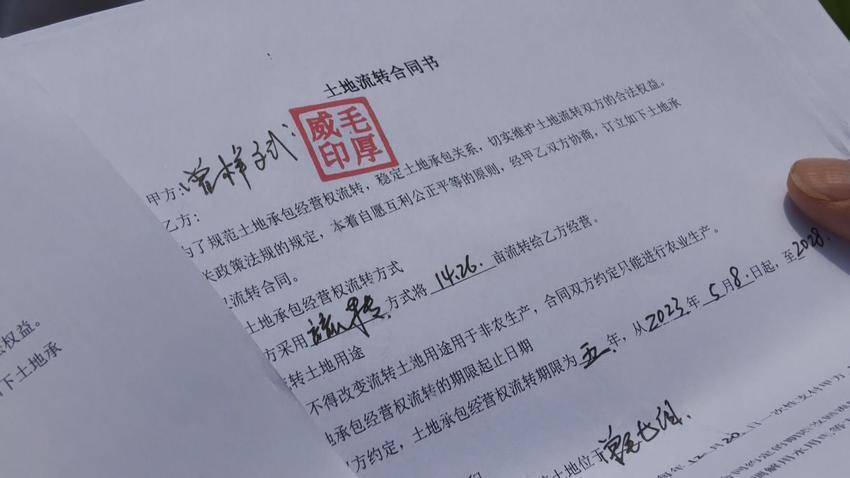 土地流转合同书
甲方:曾样
毛厚
威印
乙方:
为了规范土地承包经营权流转,稳定土地承包关系,切实维护土地流转双方的合法权益。
政策法规的规定,本着自愿互利公正平等的原则,经甲乙双方协商,订立如下土地承
流转合同。
土地承包经营权流转方式
方采用流转方式将14.26亩流转给乙方经营。
转土地用途
不得改变流转土地用途用于非农生产,合同双方约定只能进行农业生产。
承包经营权流转的期限起止日期
方约定,土地承包经营权流转期限为五年,从2023年5月8日起,至2028
土地位于
七组
年12月20日一次性支付甲方
权益。
下土地承